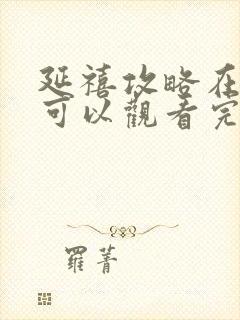 延禧攻略在
可以觀看完
羅菁